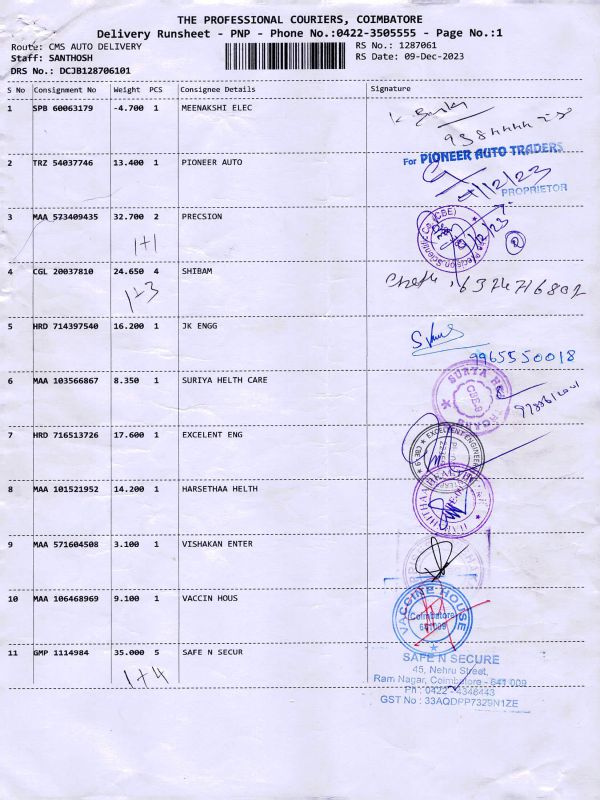 THE PROFESSIONAL COURIERS, COIMBATORE
Delivery Runsheet - PNP - Phone No.:0422-3505555 - Page No.:1
Route: CMS AUTO DELIVERY RS No.: 1287061
Staff: SANTHOSH RS Date: 09-Dec-2023
DRS No.: DCJB128706101
S No Consignment No Weight PCS Consignee Details Signature
1 SPB 60063179 -4.700 1 MEENAKSHI ELEC
2 TRZ 54037746 13.400 1 PIONEER AUTO
For PIONEER AUTO TRADERS
PROPRIETOR
3 MAA 573409435 32.700 2 PRECSION
1+1
9/12/23
2
4 CGL 20037810 24.650 4 SHIBAM
1+3
6374716802
5 HRD 714397540 16.200 1 JK ENGG
9965550018
6 MAA 103566867 8.350 1 SURIYA HELTH CARE
SURYA
7 HRD 716513726 17.600 1 EXCELENT ENG
EXCELLENT ENGINEER
8 MAA 101521952 14.200 1 HARSETHAA HELTH
9 MAA 571604508 3.100 1 VISHAKAN ENTER
10 MAA 106468969 9.100 1 VACCIN HOUS
VACCINE HOUSE
Coimbatore
641009
11 GMP 1114984 35.000 5 SAFE N SECUR
1+4
SAFE N SECURE
45, Nehru Street,
Ram Nagar, Coimbatore - 641 009
Ph : 0422 - 4346443
GST No : 33AQDPP7329N1ZE